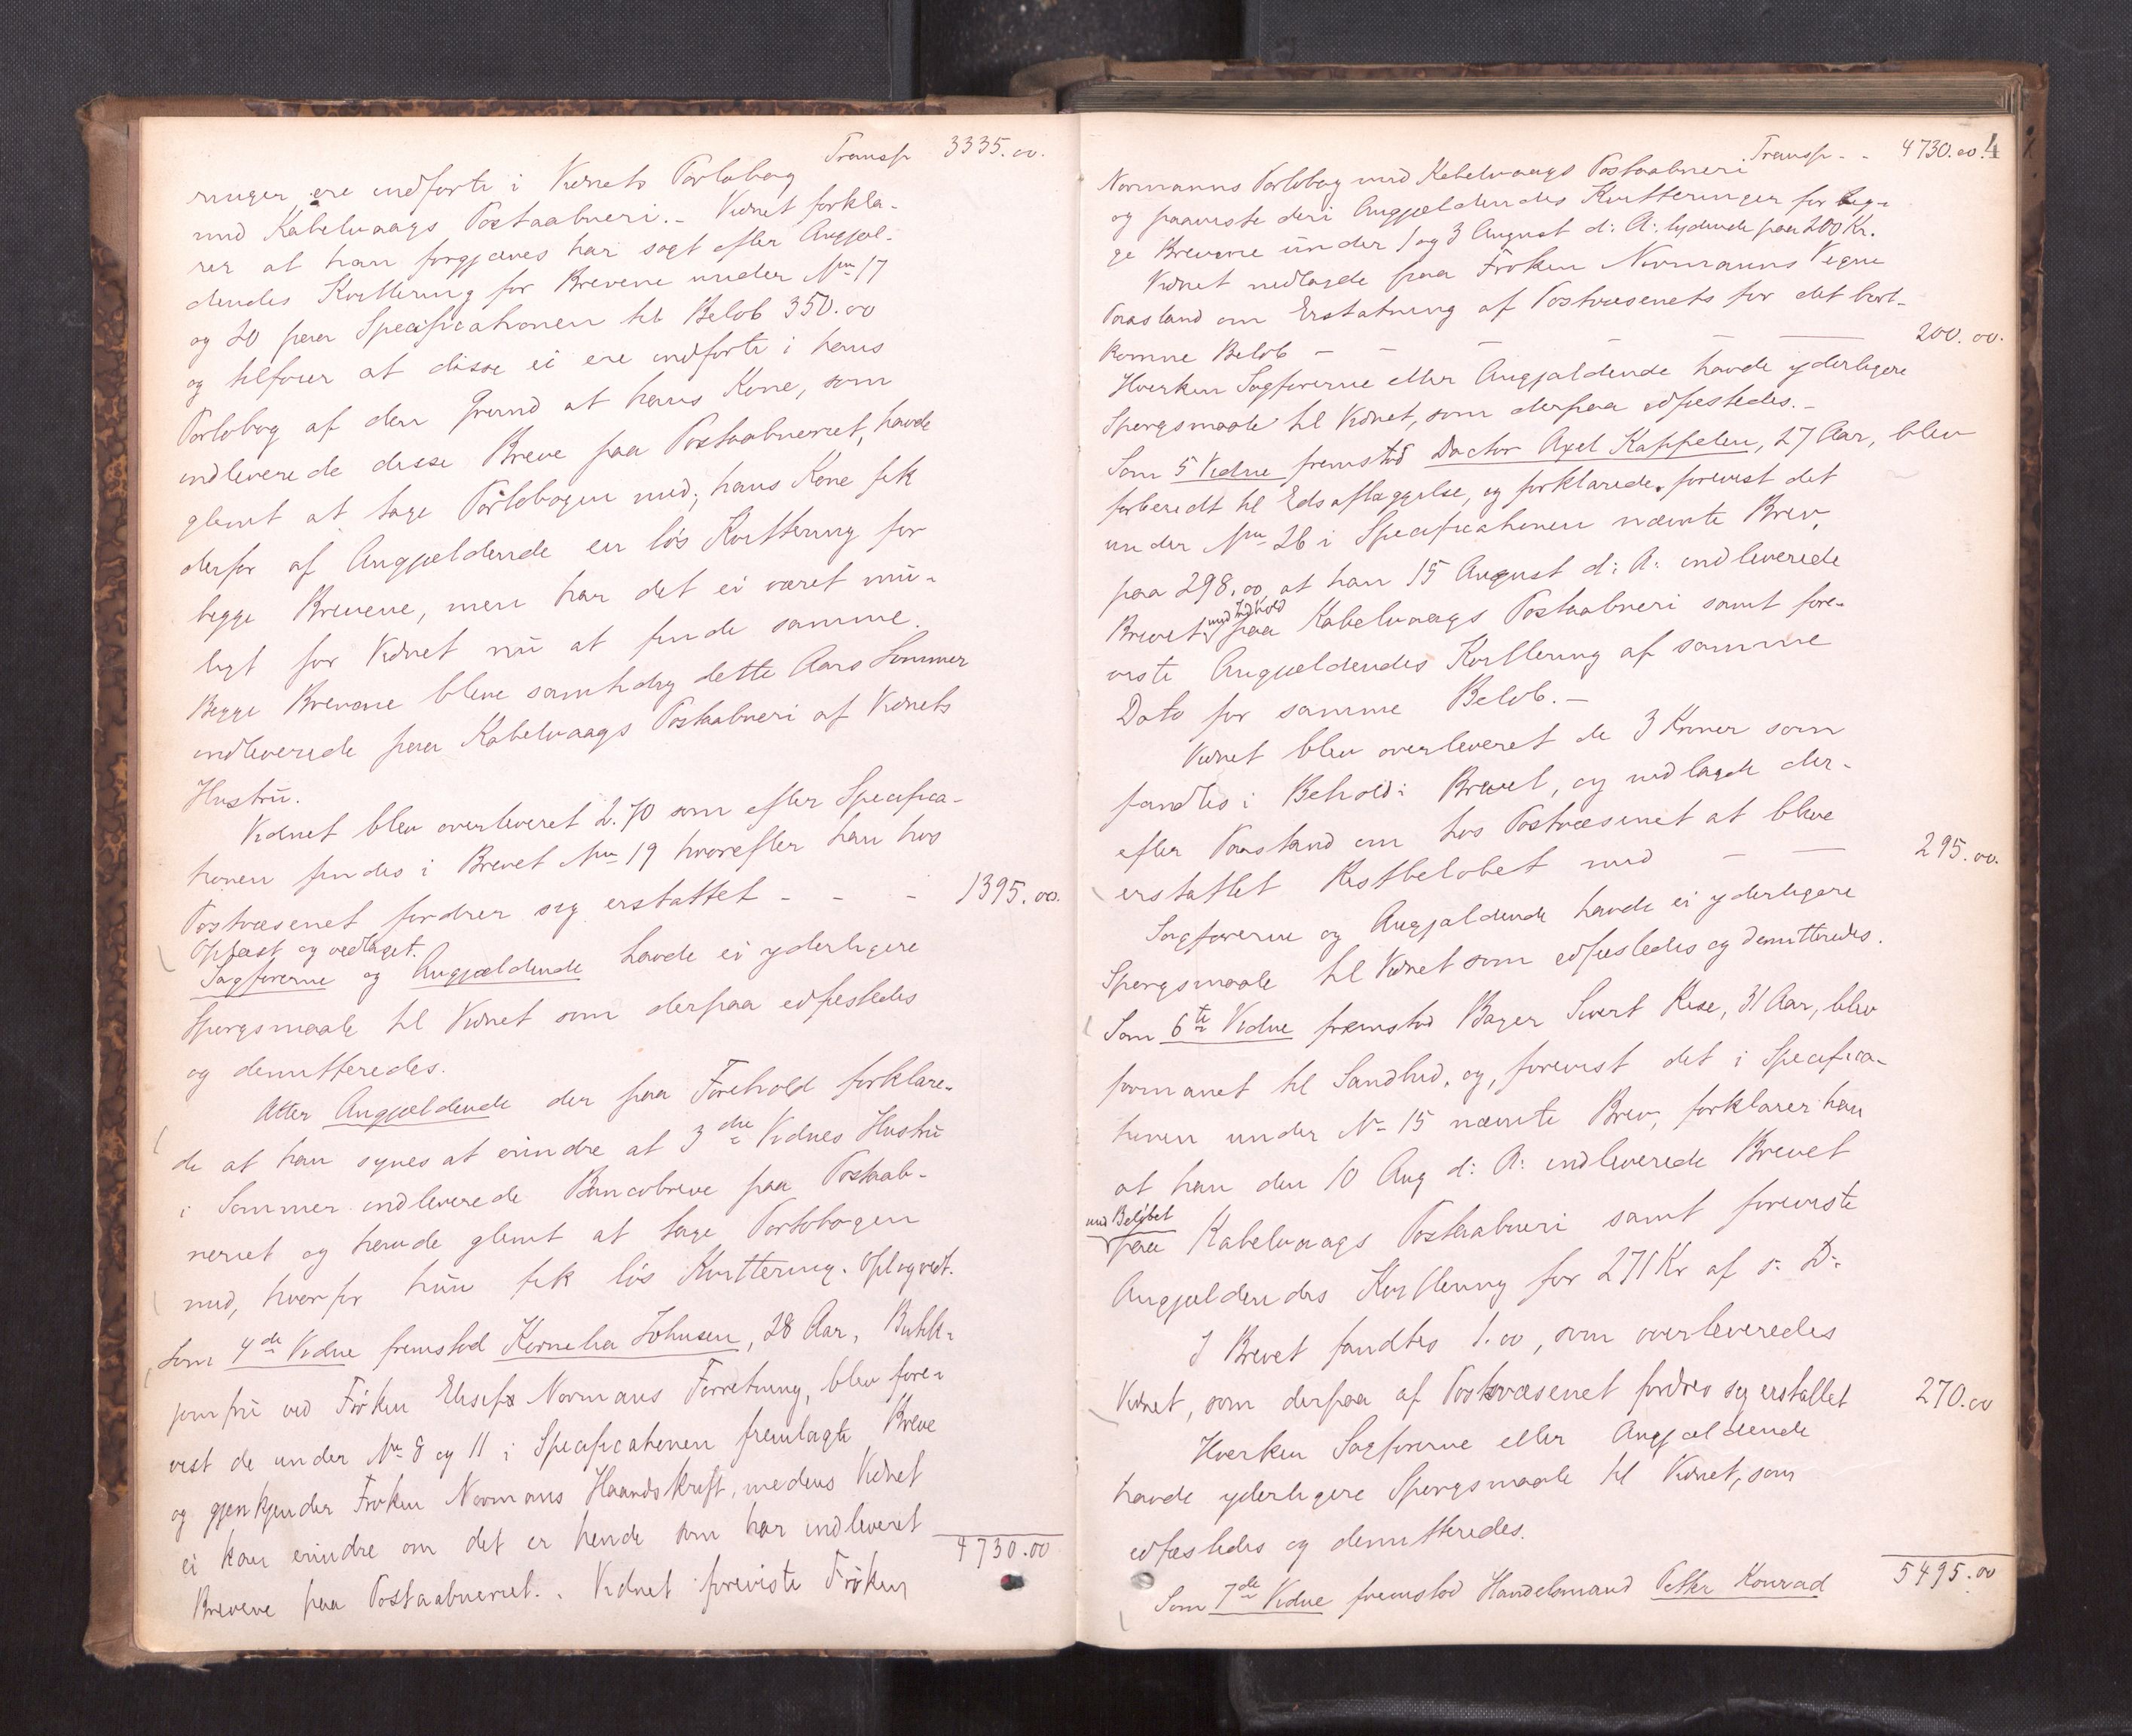 Transp 3335.00.
ringer ere indførte i Vidnets Portobog
med Kabelvaags Postaabneri. - Vidnet forkla-
rer at han forgjæves har søgt efter Angjæl-
dendes Kvittering for Brevene under No 17
og 20 paa Specificationen til Beløb 350.00
og tilføier at disse ei ere indførte i hans
Portobog af den Grund at hans Kone, som
indleverede disse Breve paa Postaabneriet, havde
glemt at tage Portobogen med; hans Kone fik
derfor af Angjældende en løs Kvittering for
begge Brevene, men har det ei været mu-
ligt for Vidnet nu at finde samme.
Begge Brevene bleve samtidig dette Aars Sommer
indleverede paa Kabelvaags Postaabneri af Vidnets
Hustru.
Vidnet blev overleveret 2.70 som efter Specifica-
tionen findes i Brevet No 19 hvorefter han hos
Postvæsenet fordrer sig erstattet - - - 1395.00.
Oplæst og vedtaget.
Sagførerne og Angjældende havde ei yderligere
Spørgsmaale til Vidnet som derpaa edfæstedes
og demitteredes.
Atter Angjældende der paa Forehold forklare-
de at han synes at erindre at 3die Vidnes Hustru
i Sommer indleverede Bancobreve paa Postaab-
neriet og havde glemt at tage Portobogen
med, hvorfor hun fik løs Kvittering. Opl og vedt.
Som 4de Vidne fremstod Kornelia Johnsen, 28 Aar, Butik-
jomfru ved Frøken Elisefs Normans Forretning, blev fore-
vist de under No 8 og 11 i Specificationen fremlagte Breve
og gjenkjender Frøken Normans Haandskrift, medens Vidnet
ei kan erindre om det er hende som har indleveret
Brevene paa Postaabneriet. - Vidnet foreviste Frøken
4730.00
4
Transp - - 4730.00.
Normanns Portobog med Kabelvaags Postaabneri
og paaviste deri Angjældendes Kvitteringer for beg-
ge Brevene under 1 og 3 August d: A: lydende paa 200 Kr.
Vidnet nedlagde paa Frøken Normanns Vegne
Paastand om Erstatning af Postvæsenets for det bort-
komne Beløb - - - - - 200.00.
Hverken Sagførerne eller Angjældende havde yderligere
Spørgsmaale til Vidnet, som derpaa edfæstedes. -
Som 5 Vidne fremstod Doctor Axel Kappelen, 27 Aar, blev
forberedt til Edsaflæggelse, og forklarede, forevist det
under No 26 i Specificationen nævnte Brev,
paa 298.00, at han 15 August d: A: indleverede
Brevet med Indhold paa Kabelvaags Postaabneri samt fore-
viste Angjældendes Kvittering af samme
Dato for samme Beløb. -
Vidnet blev overleveret de 3 Kroner som
fandtes i Behold i Brevet, og nedlagde der-
efter Paastand om hos Postvæsenet at blive
erstattet Restbeløbet med - - 295.00.
Sagførerne og Angjældende havde ei yderligere
Spørgsmaale til Vidnet som edfæstedes og demitteredes.
Som 6te Vidne fremstod Bager Sivert Rise, 31 Aar, blev
formanet til Sandhed, og, forevist det i Specifica-
tionen under No 15 nævnte Brev, forklarer han
at han den 10 Aug d: A: indleverede Brevet
med Beløbet paa Kabelvaags Postaabneri samt foreviste
Angjældendes Kvittering for 271 Kr af s: D:
I Brevet fandtes 1.00, som overleveredes
Vidnet, som derpaa af Postvæsenet fordres sig erstattet 270.00
Hverken Sagførerne eller Angjældende
havde yderligere Spørgsmaale til Vidnet, som
edfæstedes og demitteredes.
Som 7de Vidne fremstod Handelsmand Petter Konrad
5495.00